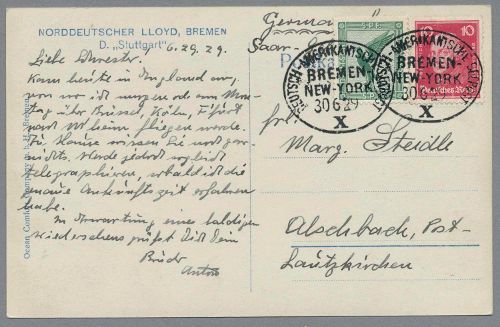 NORDDEUTSCHER LLOYD, BREMEN
D. „Stuttgart”
6. 29. 29.
Liebe Schwester.
Kam heute in England an,
von wo ich morgen
über Brüssel, Köln,
nach M'heim fliegen werde.
Zu Hause wissen Sie noch gar
nichts. Werde jedoch sogleich
telegraphieren, sobald ich die
genaue Ankunftszeit erfahren
habe.
In Erwartung eines baldigen
Wiedersehens grüßt Dich Dein
Bruder
Anton
Germany
Saar
5
10
Deutsches Reich
DEUTSCH-AMERIKANISCHE SEEPOST
BREMEN
NEW-YORK
30 6 29
X
DEUTSCH-AMERIKANISCHE SEEPOST
BREMEN
NEW-YORK
30 6 29
X
Frl
Marg. Steidle
Alschbach, Post-
Lautzkirchen